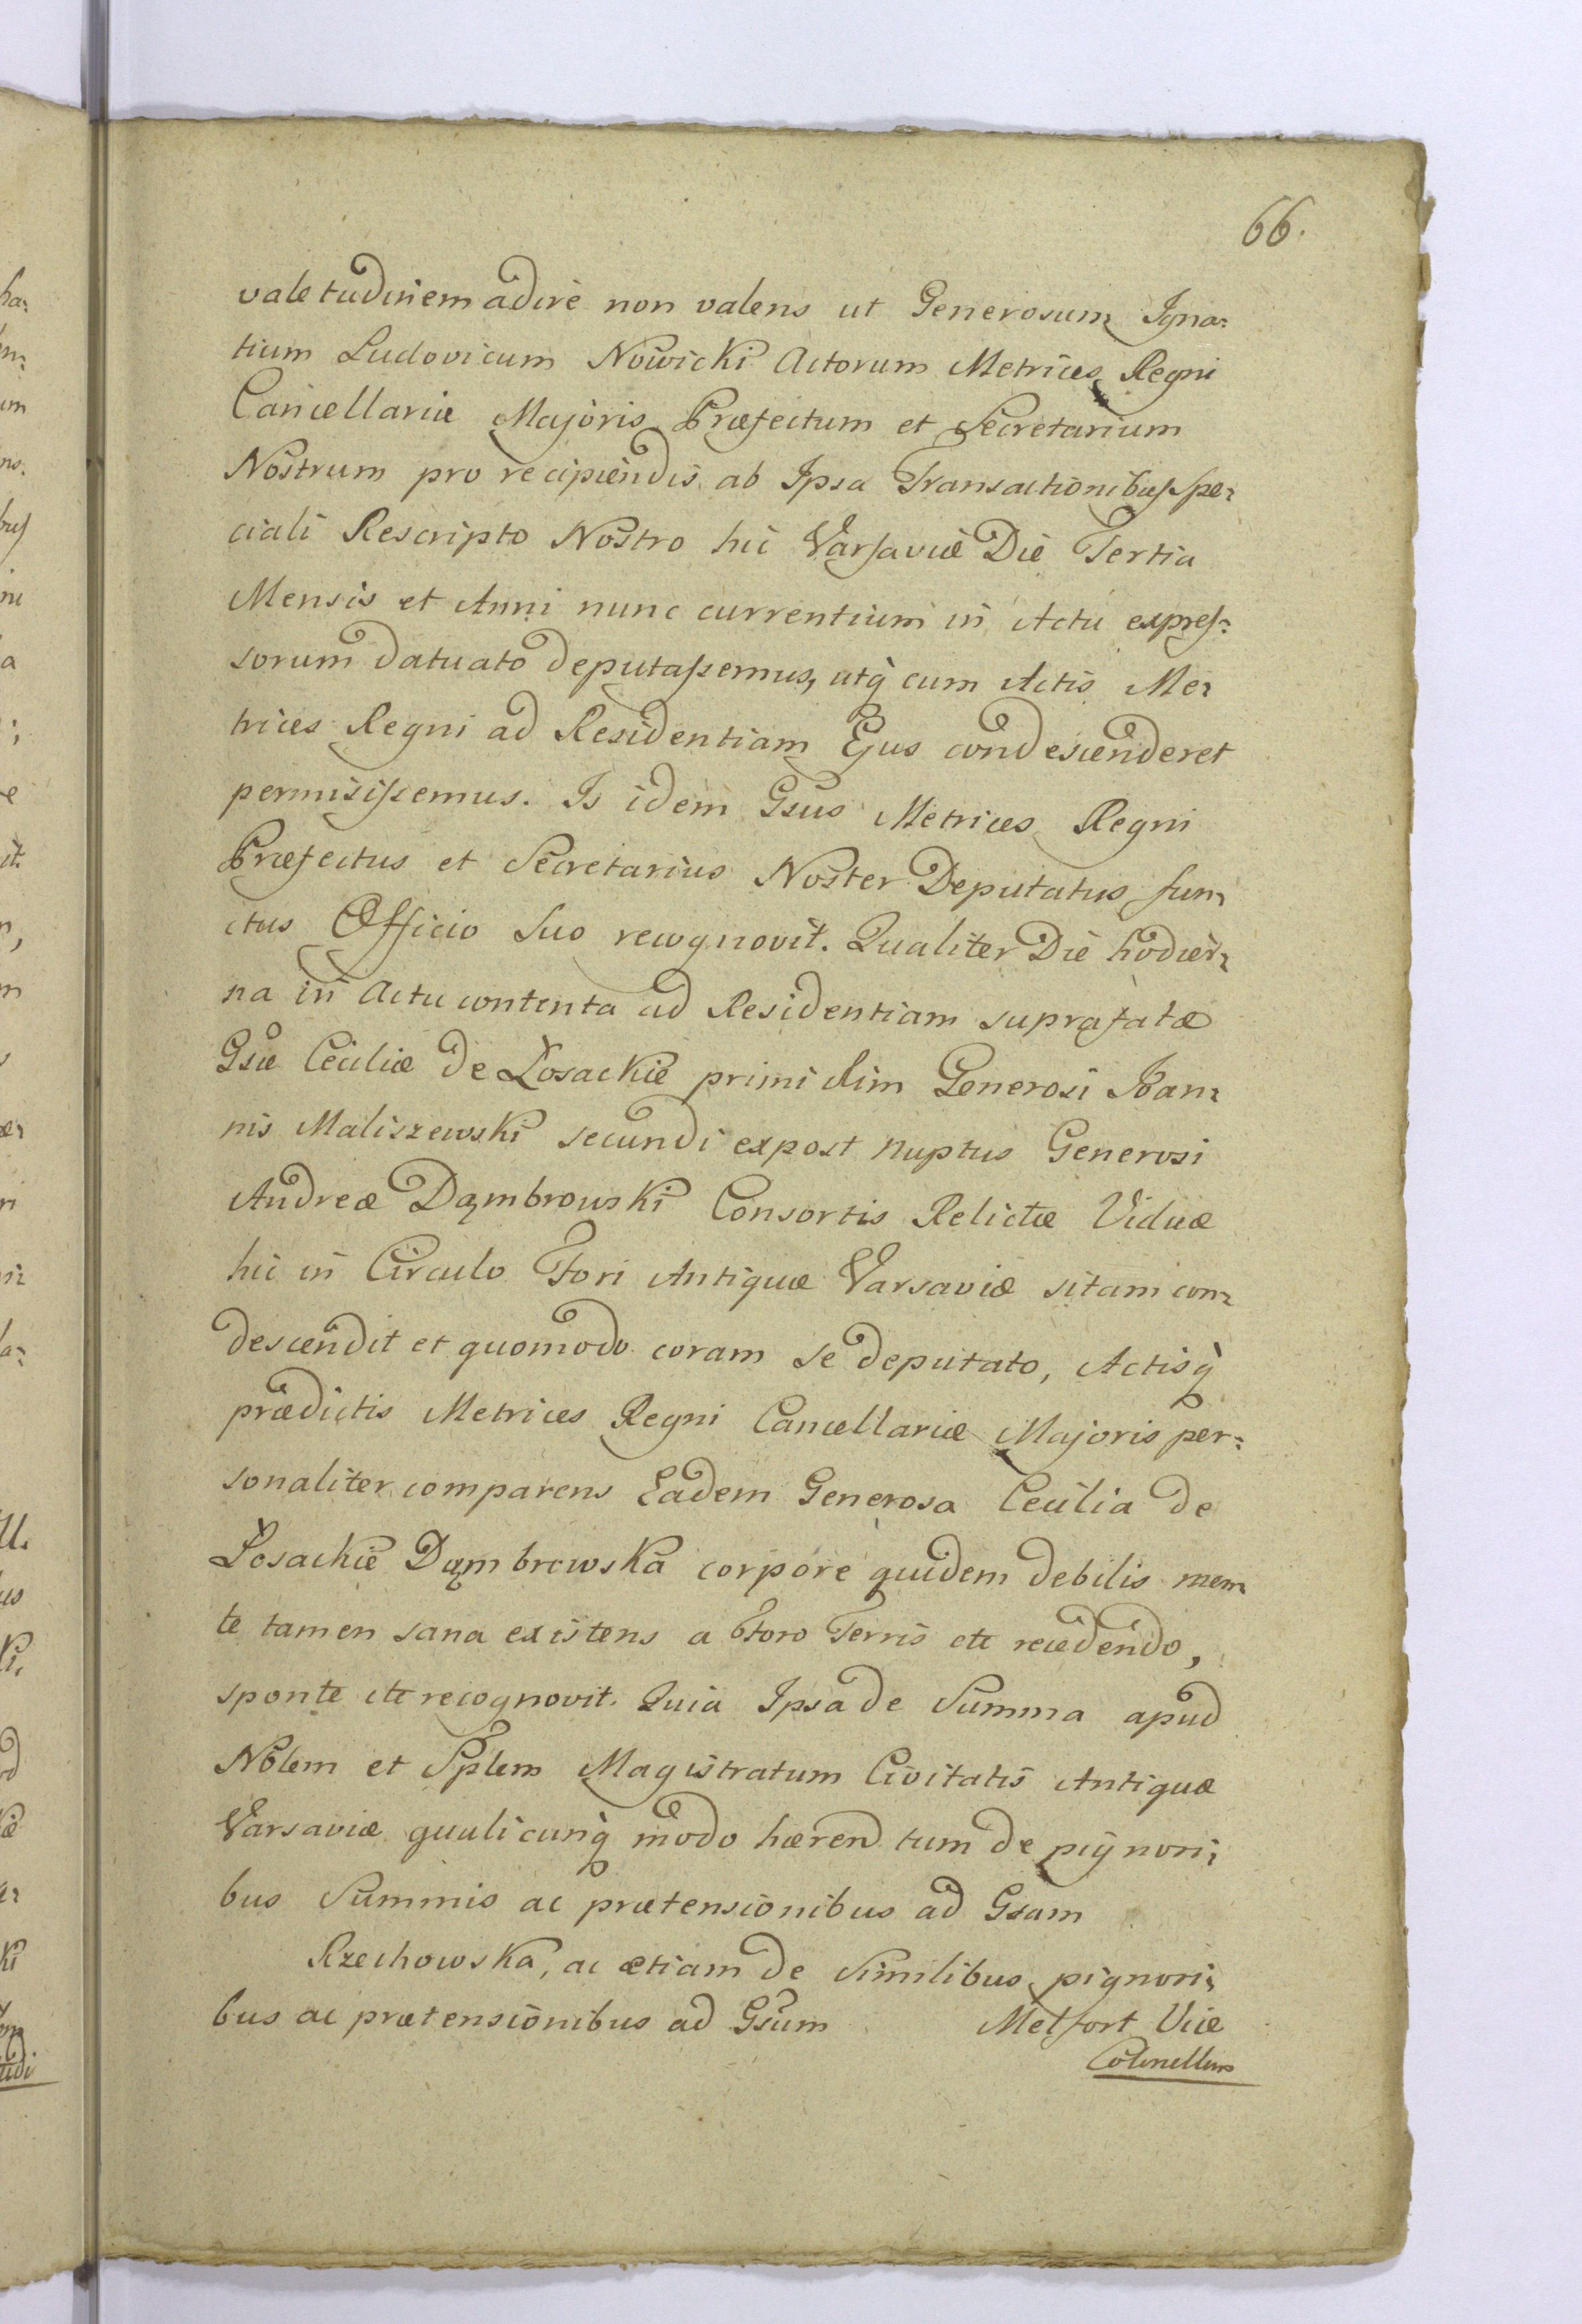 66.
valetudinem adire non valens ut Generosum Igna=
tium Ludovicum Nowicki Actorum Metrices Regni
Cancellariæ Majoris Præfectum et Secretarium
Nostrum pro recipiendis ab Ipsa Transactionibus spe=
ciali Rescripto Nostro hic Varsaviæ Die Tertia
Mensis et Anni nunc currentium in Actu expres=
sorum datuato deputassemus, atq cum Actis Me=
trices Regni ad Residentiam Ejus condescenderet
permisissemus. Is idem Gsus Metrices Regni
Præfectus et Secretarius Noster Deputatus fun=
ctus Officio Suo recognovit. Qualiter Die hodier=
na in Actu contenta ad Residentiam suprafatæ
Gsæ Ceciliæ de Łosackie primi olim Generosi Ioan=
nis Maliszewski secundi expost nuptus Generosi
Andreæ Dąmbrowski Consortis Relictæ Viduæ
hic in Circulo Fori Antiquæ Varsaviæ sitam con=
descendit et quomodo coram se deputato, Actisq
prædictis Metrices Regni Cancellariæ Majoris per=
sonaliter comparens Eadem Generosa Cecilia de
Łosackie Dąmbrowska corpore quidem debilis men=
te tamen sana existens a Foro Terris etc recedendo,
sponte etc recognovit. Quia Ipsa de Summa apud
Noblem et Splem Magistratum Civitatis Antiquæ
Varsaviæ qualicunq modo hæren tum de pignori=
bus Summis ac prætensionibus ad Gsam
Rzechowska, ac etiam de Similibus pignori=
bus ac prætensionibus ad Gsum Melfort Vice
Colonellum